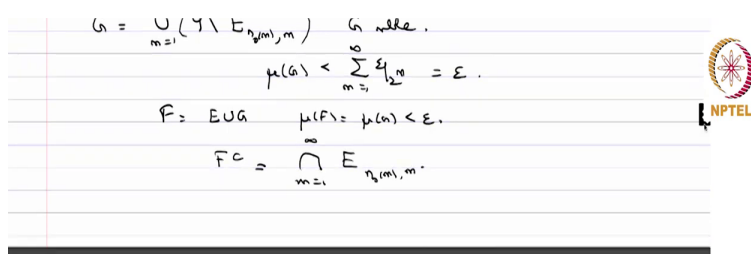 G = ∪_{m=1} (Y \ E_{n_0(m), m}) G mble.
μ(G) < ∑_{m=1}^{∞} ε/2^m = ε.
F = E ∪ G μ(F) = μ(G) < ε.
F^c = ∩_{m=1}^{∞} E_{n_0(m), m}.
NPTEL